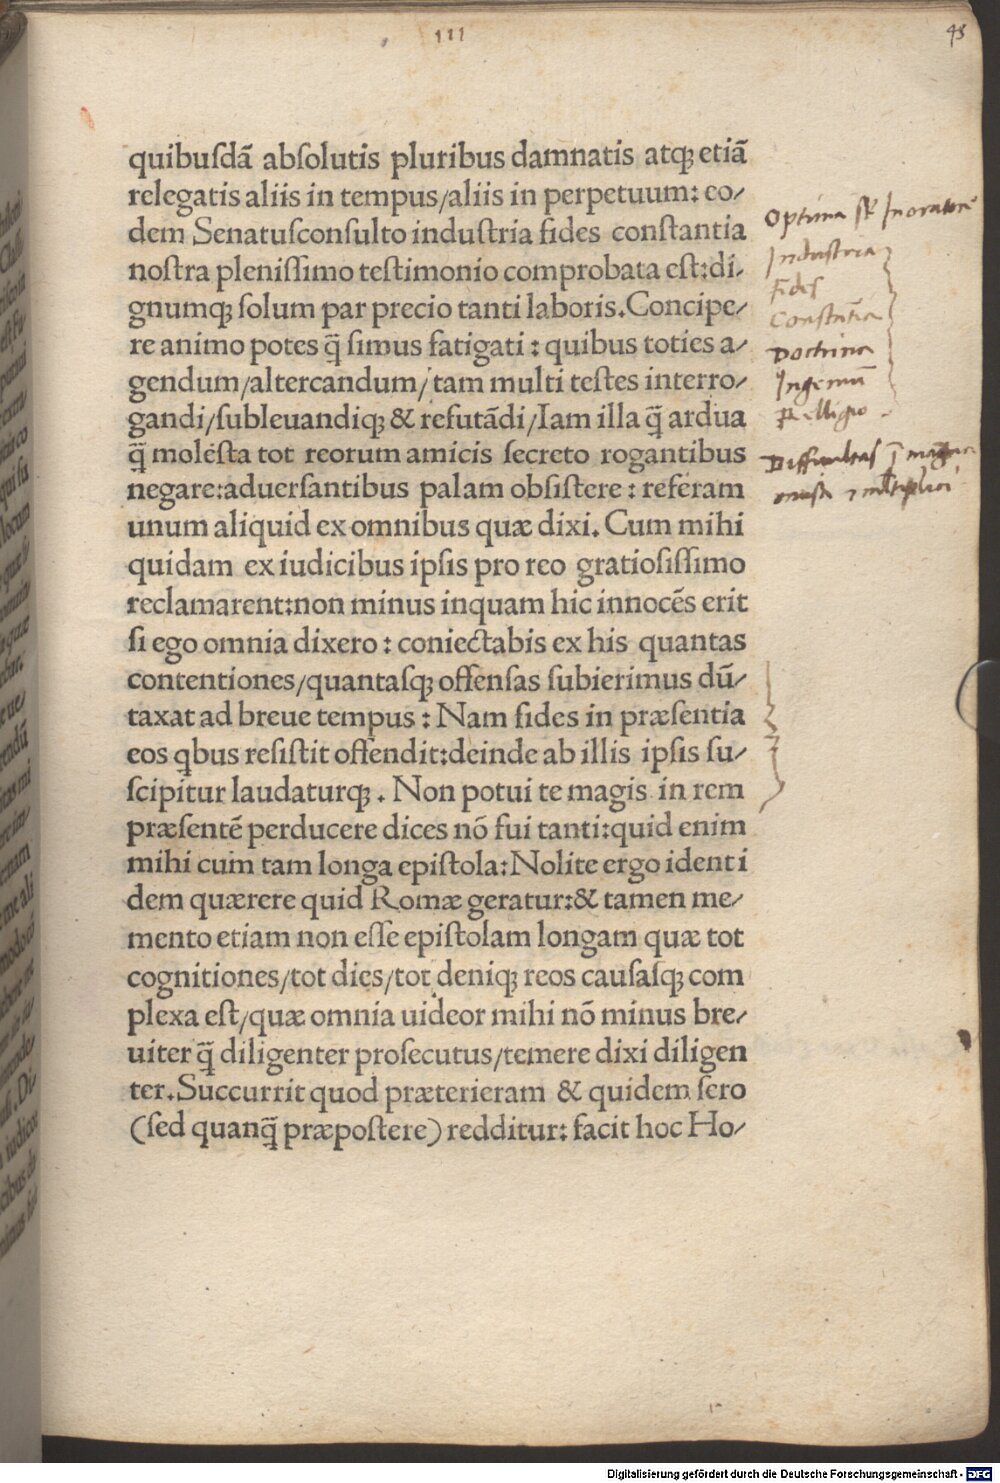 III
45
quibuſdā abſolutis pluribus damnatis atqꝫ etiā
relegatis aliis in tempus/aliis in perpetuum: eo⸗
dem Senatuſconſulto induſtria fides conſtantia
noſtra pleniſſimo teſtimonio comprobata eſt:di⸗
gnumqꝫ ſolum par precio tanti laboris.Concipe⸗
re animo potes q̄ ſimus fatigati : quibus toties a⸗
gendum/altercandum/tam multi teſtes interro⸗
gandi/ſubleuandiqꝫ & refutādi/Iam illa q̄ ardua
q̄ moleſta tot reorum amicis ſecreto rogantibus
negare:aduerſantibus palam obſiſtere : referam
unum aliquid ex omnibus quæ dixi. Cum mihi
quidam ex iudicibus ipſis pro reo gratioſiſſimo
reclamarent:non minus inquam hic innocēs erit
ſi ego omnia dixero : coniectabis ex his quantas
contentiones/quantaſqꝫ offenſas ſubierimus dū⸗
taxat ad breue tempus : Nam fides in præſentia
eos qbus reſiſtit offendit:deinde ab illis ipſis ſu⸗
ſcipitur laudaturqꝫ . Non potui te magis in rem
præſentē perducere dices nō fui tanti:quid enim
mihi cum tam longa epiſtola:Nolite ergo identi
dem quærere quid Romæ geratur:& tamen me⸗
mento etiam non eſſe epiſtolam longam quæ tot
cognitiones/tot dies/tot deniqꝫ reos cauſaſqꝫ com
plexa eſt/quæ omnia uideor mihi nō minus bre⸗
uiter q̄ diligenter proſecutus/temere dixi diligen
ter.Succurrit quod præterieram & quidem ſero
(ſed quanq̄ præpoſtere) redditur: facit hoc Ho⸗
Optima
Induſtria
Fides
Conſtātia
Doctrina
Ingeniū
Relligio
Difficultas
Digitalisierung gefördert durch die Deutsche Forschungsgemeinschaft - DFG